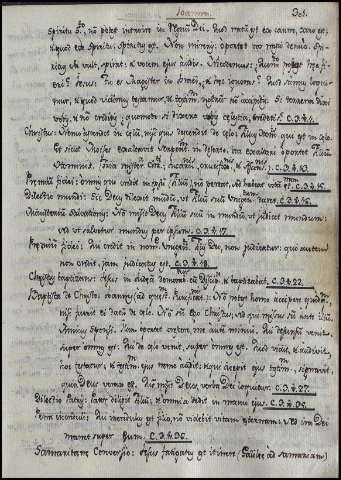 Joannes. 301.
Spiritu Sto, nō potest introire in Regnū Dei. Quod natū est ex carne, caro est,
& quod ex Spiritu, Spiritus est. Non mireris: oportet vos nasci denuò. Spi-
ritus ubi vult, spirat: & vocem ejus audis. Nicodemus: Quomō possunt hæc fi-
eri? Jesus: Tu es Magister in Israël, & hæc ignoras? Quod scimus loqui-
mur, & quod vidimus testamur, & testim: nostrū nō accipitis. Si terrena dixi
vobis, & nō creditis; quomodo si dixero vobis cœlestia, credetis? C. 3. v.
Christus: Nemo ascendit in cœlū, nisi qui descendit de cœlo: Filius hominis qui est in cœlo.
Et sicut Moyses exaltavit Serpentē in deserto, ita exaltari oportet Filiū
hominis. C. 3. v. 13.
Præmiū fidei: omnis qui credit in ipsū, nō pereat, sed habeat vitā æt. C. 3. v. 15.
Dilectio mundi: Sic Deus dilexit mundū, ut Filiū suū Unigen: daret. C. 3. v. 16.
Non misit Deus Filiū suū in mundū, ut judicet mundum:
sed ut salvetur mundus per ipsum. C. 3. v. 17.
Præmiū fidei: Qui credit in nomine Filii Dei, non judicatur: qui autem
non credit, jam judicatus est. C. 3. v. 18.
Christus baptizans: Jesus in demoratr cū Discip: & baptizabat. C. 3. v. 22.
Baptista de Christo: Nō potest homo accipere quidquā
nisi fuerit ei datū de cœlo. Nō sū ego Christus, sed quia missus sū ante illū.
Amicus sponsi. Illum oportet crescere, me autē minui. Qui desursū venit,
super omnes est: Qui de cœlo venit, super omnes est. Quod vidit, & audivit,
hoc testatur, & testim: ejus nemo accipit: qui accepit ejus testim, signavit,
quia Deus verax est. Quē misit Deus, verba Dei loquitur. C. 3. v.
Dilectio Patris: Pater diligit Filiū, & omnia dedit in manu ejus. C. 3. v. 35.
Qui incredulus est filio, nō videbit vitam æternam: sed ira Dei
manet super Eum. C. 3. v. 36.
Samaritanæ Conversio: Jesus fatigatus est itinere (Galileæ ad Samariam)